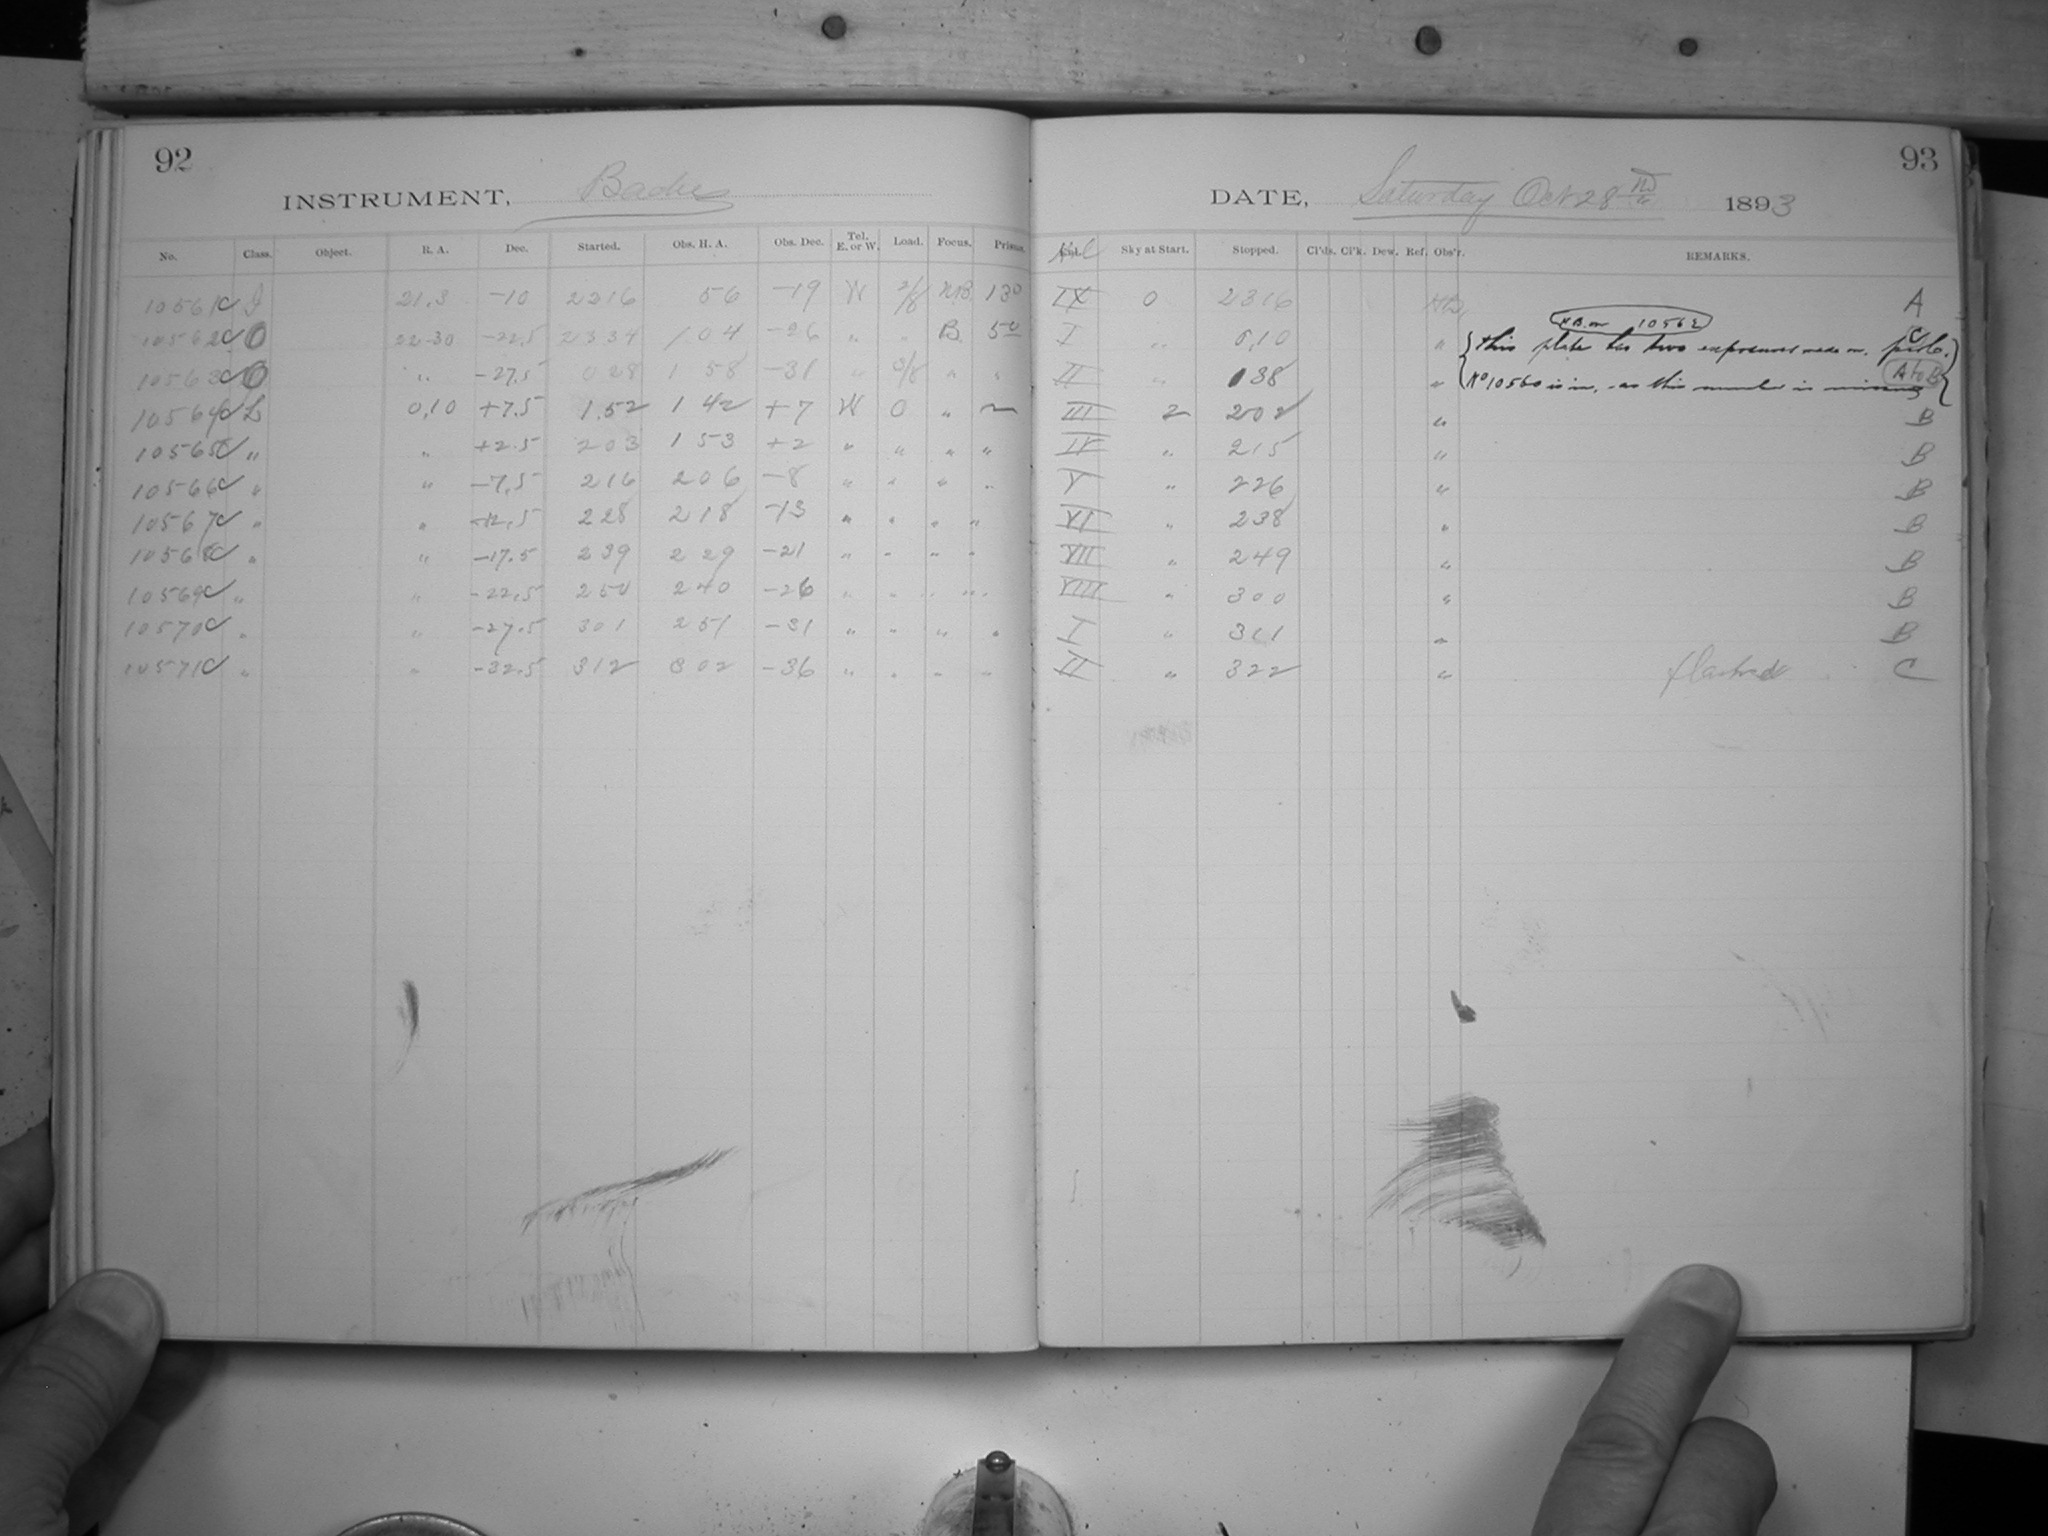 92
INSTRUMENT, Bache
No. Class. Object. R. A. Dec. Started. Obs. H. A. Obs. Dec. Tel. E. or W. Load. Focus. Prisms.
10561C 21.3 -10 2216 56 -19 W 2/8 130
10562C O 22.30 -22.5 2334 1 04 -26 " " B. 50
10563C O " -27.5 028 1 58 -31 " 0/8 " "
10564C L 0,10 +7.5 1.52 1 42 +7 W 0 " ~
10565C " " +2.5 203 1 53 +2 " " " "
10566C " " -7.5 216 206 -8 " " " "
10567C " " -12.5 228 218 -13 " " " "
10568C " " -17.5 239 229 -21 " " " "
10569C " " -22.5 250 240 -26 " " " "
10570C " " -27.5 301 251 -31 " " " "
10571C " " -32.5 312 302 -36 " " " "
93
DATE, Saturday Oct 28 1893
Sky at Start. Stopped. Cl'ds. Cl'k. Dew. Ref. Obs'r. REMARKS.
IX 0 2316 A
N.B. on 10562
I " 0,10 " { this plate has two exposures made on, C
II " 138 " No 10560 is in, as this number is missing } A to B
III 2 202 " B
IV " 215 " B
V " 226 " B
VI " 238 " B
VII " 249 " B
VIII " 300 " B
I " 311 " B
II " 322 " C